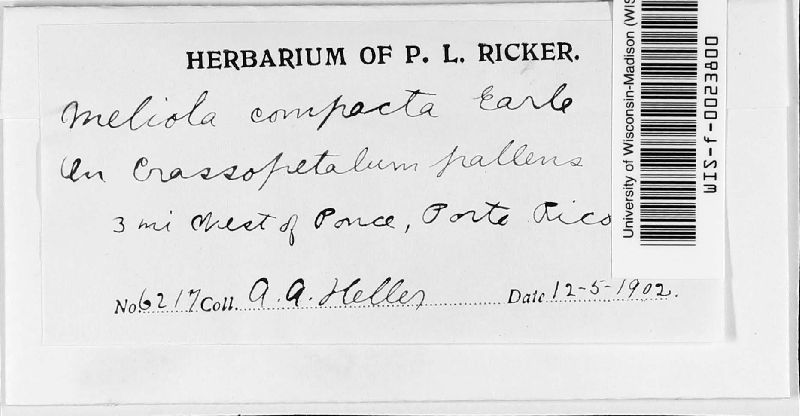 HERBARIUM OF P. L. RICKER.
Meliola compacta Earle
On Crassopetalum pallens
3 mi West of Ponce, Porto Rico
No. 6217 Coll. A. A. Heller Date 12-5-1902.
University of Wisconsin-Madison (WIS
WIS-f-0023800